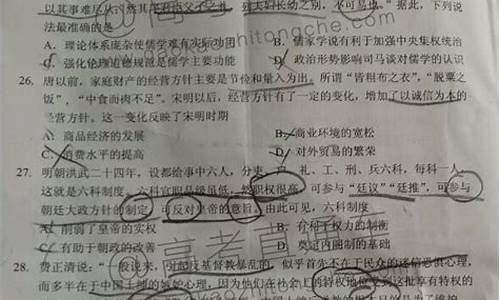 以其事难尽从
不可易也。”据此，下列说
法最准确的是
A．理论体系庞杂使儒学难有实际功用
B．儒家学说有利于加强中央集权统治
C．强化伦理道德规范是儒学主要功能
D．政治形势影响司马谈对儒学的认识
26．唐以前，家庭财产的经营方针主要是节俭和量入为出。所谓“皆粗布之衣”，“脱粟之
饭”，“中食而肉不足”。宋明以后，经营方针有了一定的变化，增加了以诚信为本的
经营方针。这一变化反映了宋明时期
A．商品经济的发展
B．商业环境的宽松
C．消费水平的提高
D．对外贸易的繁荣
27．明朝洪武二十四年，设都给事中六人，分吏、户、礼、工、刑、兵六科，每科一人，
这就是六科制度。六科官职品级虽低，然职权很高，可参与“廷议”“廷推”，可参与
朝廷大政方针的制定，可反对皇帝的意旨。由此可见，六科制度
A．削弱了皇帝的实权
B．有利于权力的制衡
C．有助于朝政的改善
D．奠定内阁制的基础
28．费正清说：“一般说来，
似乎首先不在于民众的迷信恐惧心理，
而多半在于中国士绅的妒妒心理，因为他们在社会上的特权地位受到这批享有特权的